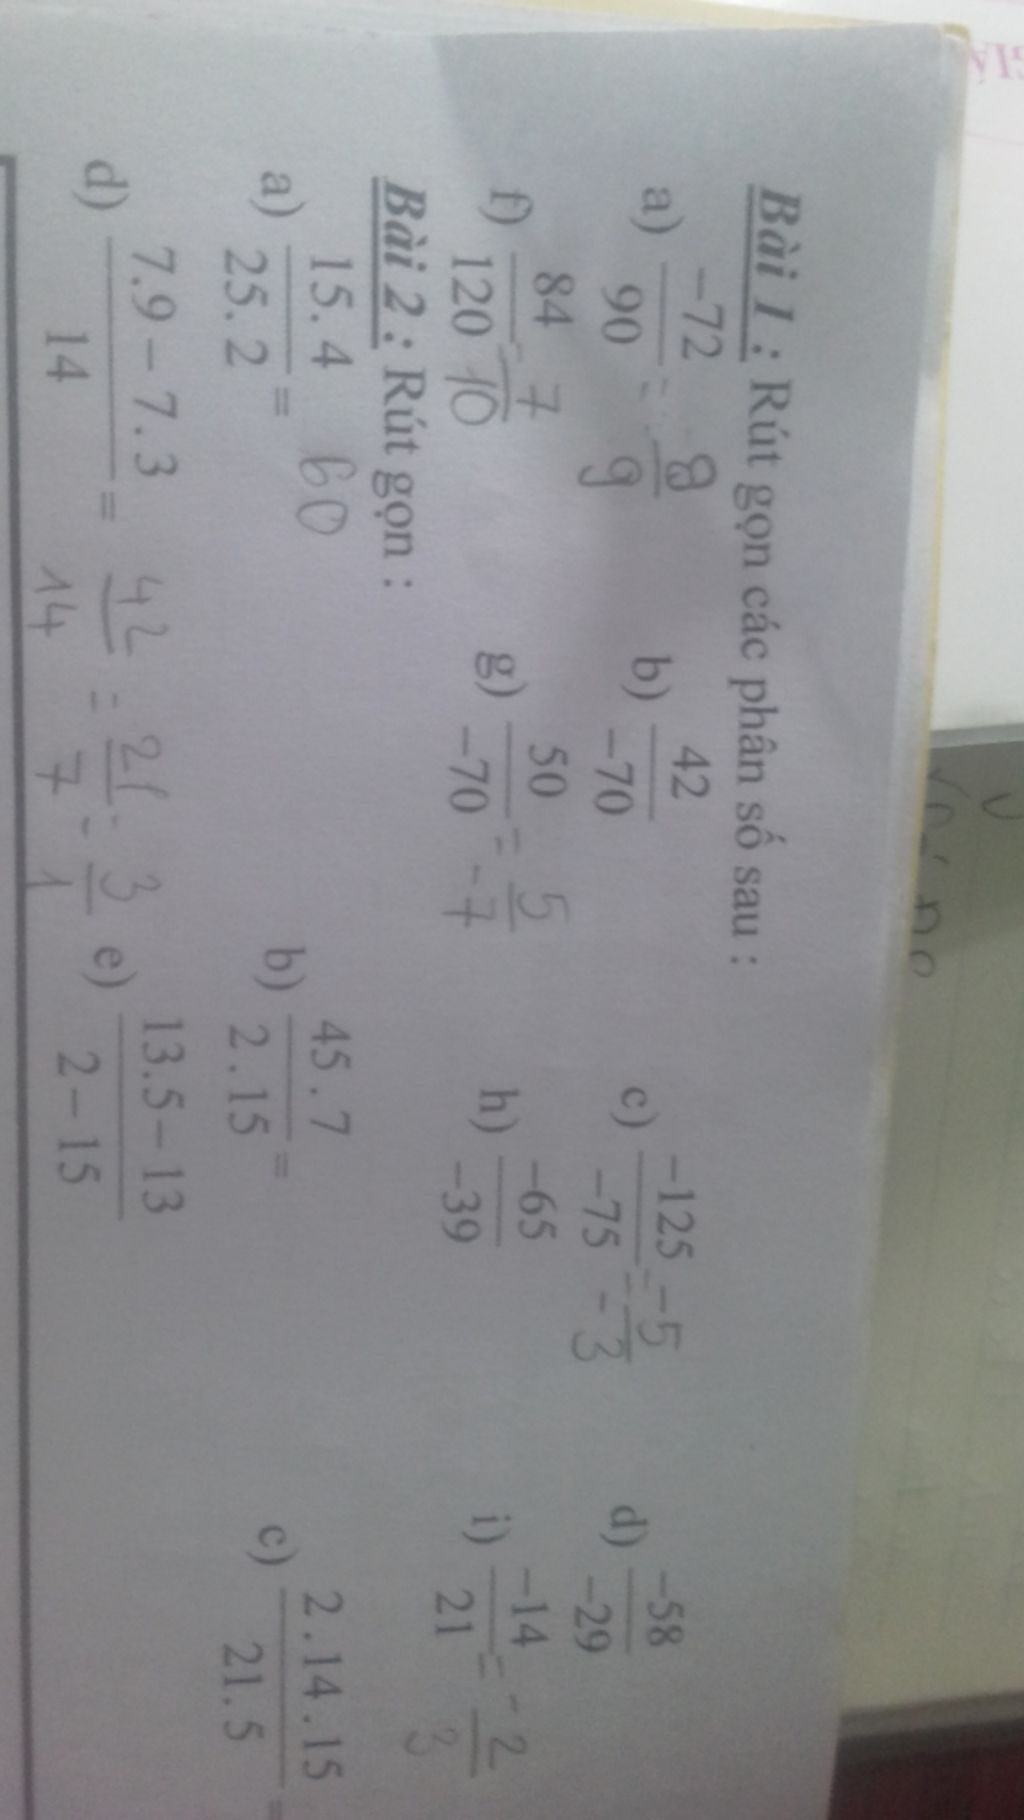 Bài 1 : Rút gọn các phân số sau :
a) -72/90 = 8/9 b) 42/-70 c) -125/-75 = -5/-3 d) -58/-29
f) 84/120 = 7/10 g) 50/-70 = 5/-7 h) -65/-39 i) -14/21 = -2/3
Bài 2 : Rút gọn :
a) 15.4/25.2 = 60 b) 45.7/2.15 = c) 2.14.15/21.5 =
d) 7.9-7.3/14 = 42/14 = 21/7 = 3/1 e) 13.5-13/2-15